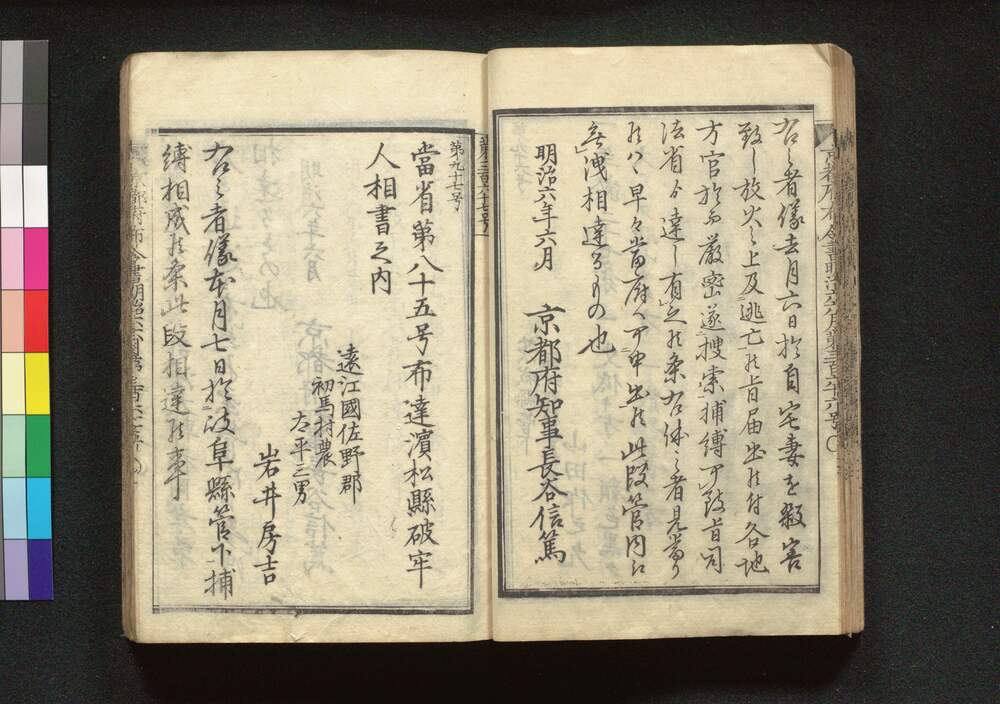 右之者儀去月六日於自宅妻を殺害
致し放火之上及逃亡候旨届出候付各地
方官於而厳密遂捜索捕縛可致旨司
法省ゟ達し有之候条右体之者見当り
候ハヽ早々当府へ可申出候此段管内江
無洩相達するもの也
明治六年六月 京都府知事長谷信篤
第三百六十七号
第九十七号
當省第八十五号布達濱松縣破牢
人相書之内
遠江國佐野郡
初馬村農
左平三男
岩井房吉
右之者儀本月七日於岐阜縣管下捕
縛相成候条此段相達候事